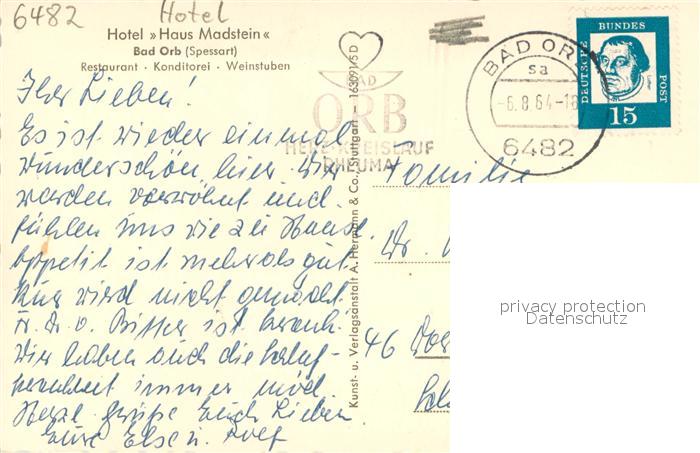 6482 Hotel
Hotel »Haus Madstein«
Bad Orb (Spessart)
Restaurant · Konditorei · Weinstuben
Ihr Lieben!
Es ist wieder einmal
wunderschön hier. Wir
werden verwöhnt und
fühlen uns wie zu Hause.
Appetit ist mehr als gut.
Kur wird nicht gemacht.
Wir haben auch die
immer
Herzl. Grüße Euch Lieben
Eure Else u. Rolf
Kunst- u. Verlagsanstalt A. Hermann & Co., Stuttgart — 163091/5 D
BAD
ORB
HERZ-KREISLAUF
RHEUMA
BAD ORB
sa
-6.8.64-
6482
DEUTSCHE BUNDES POST
15
Familie
Dr.
46
privacy protection
Datenschutz